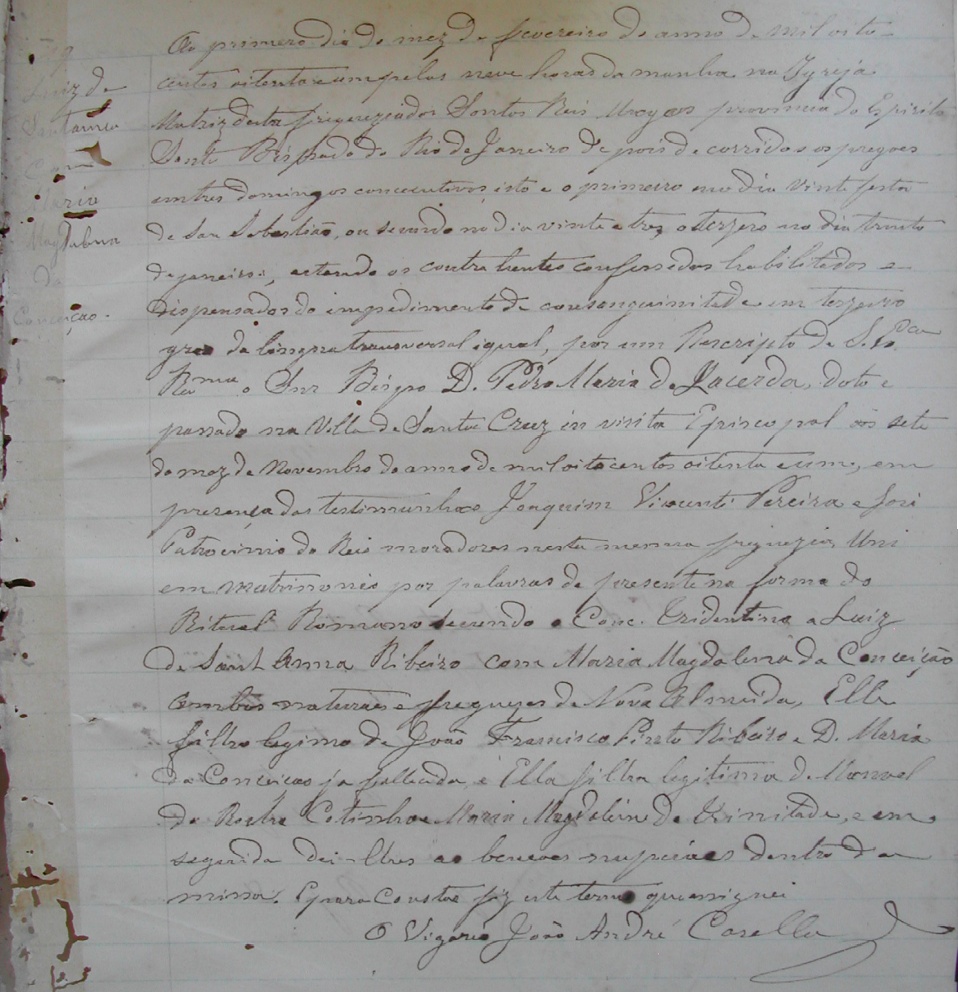 Luiz de
Santanna
Com
Maria
Magdalena
da
Conceição.
Ao primero dia do mez de fevereiro do anno de mil oito
centos oitenta e um pelas nove horas da manha na Igreja
Matriz desta freguezia dos Santos Reis Magos provincia do Espirito
Santo Bispado do Rio de Janeiro depois de corridos os pregoes
em tres domingos concecutivos isto e o primeiro no dia vinte festa
de San Sebastião, ou segundo no dia vinte e tres, o terzero no dia trinta
de janeiro, estando os contrahentes confessados habilitados e
dispensados do impedimento de consanguinitade em terzeiro
grao da linha transversal equal, por um Rescripto de S. Exca
Rma o Snr Bispo D. Pedro Maria de Lacerda, dato e
passado na Villa de Santa Cruz in visita Episcopal aos sete
do mez de Novembro do anno de mil oitocentos oitenta e um, em
presença das testimunhas Joaquim Vicente Pereira e José
Patrocinio do Reis moradores nesta mesma freguezia, Uni
em matrimonio por palavras de presente na forma do
Ritual Romano secundo o Conc. Tridentino a Luiz
de Sant Anna Ribeiro com Maria Magdalena da Conceição
ambos naturaes e freguezes de Nova Almeida, Elle
filho legimo de João Francisco Pinto Ribeiro e D. Maria
da Conceicao ja fallecida, e Ella filha legitima de Manoel
da Rocha Cotinho e Maria Magdalena da Trinitade, e em
seguida dei-lhes as bencoes nupciaes dentro da
missa. E para Constar fiz este termo que assignei
O Vigario João André Casella